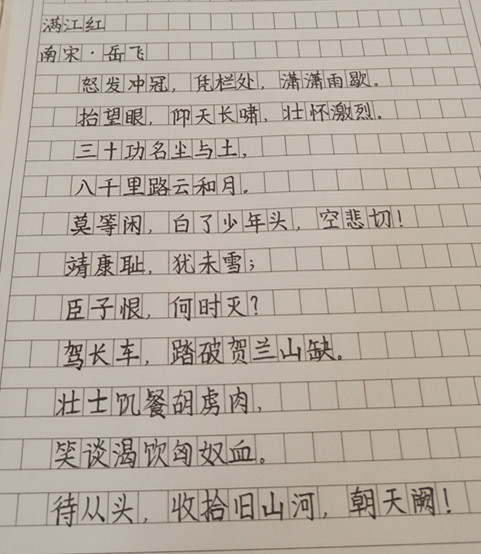 满江红
南宋·岳飞
怒发冲冠，凭栏处，潇潇雨歇。
抬望眼，仰天长啸，壮怀激烈。
三十功名尘与土，
八千里路云和月。
莫等闲，白了少年头，空悲切！
靖康耻，犹未雪；
臣子恨，何时灭？
驾长车，踏破贺兰山缺。
壮士饥餐胡虏肉，
笑谈渴饮匈奴血。
待从头，收拾旧山河，朝天阙！